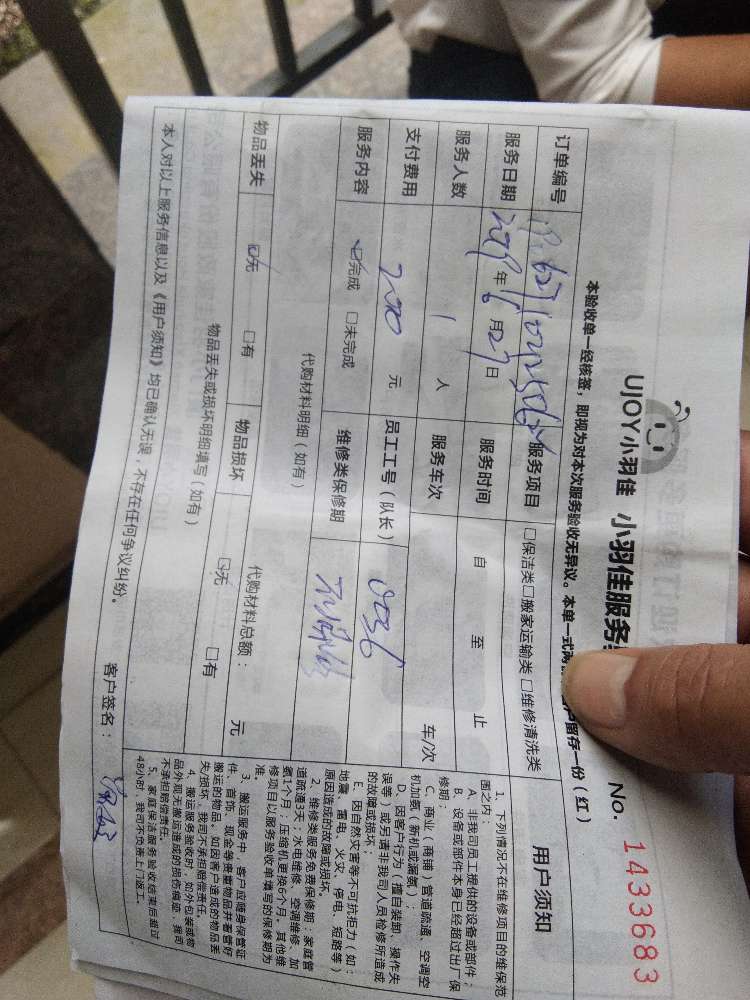 UJOY小羽佳 小羽佳服务
No. 1433683
本验收单一经核签，即视为对本次服务验收无异议。本单一式两 户留存一份（红）
订单编号 服务项目 □保洁类□搬家运输类□维修清洗类
服务日期 年 6 月 27 日 服务时间 自 至 止
服务人数 1 人 服务车次 车/次
支付费用 200 元 员工工号（队长） 0036
服务内容 ☑完成 □未完成 维修类保修期 不保修
代购材料明细（如有） 代购材料总额： 元
物品丢失 ☑无 □有 物品损坏 ☑无 □有
物品丢失或损坏明细填写（如有）
本人对以上服务信息以及《用户须知》均已确认无误，不存在任何争议纠纷。 客户签名：
用户须知
1、下列情况不在维修项目的维保范
围之内：
A、非我司员工提供的设备或部件；
B、设备或部件本身已经超过出厂保
修期；
C、商业（商铺）管道疏通、空调空
机加氨（新机或漏氨）；
D、因客户行为（擅自装卸、操作失
误等）或另请非我司人员检修所造成
的故障或损坏；
E、因自然灾害等不可抗拒力（如：
地震、雷电、火灾、停电、短路等）
原因造成的故障或损坏。
2、维修类服务免费保修期：家庭管
道疏通3天；水电维修、空调维修、加
氨1个月；压缩机更换6个月。其他维
修项目以服务验收单填写的保修期为
准。
3、搬运服务中，客户应随身保管证
件、首饰、现金等贵重物品并看管好
搬运的物品，如因客户造成的物品丢
失/损坏，我司不承担赔偿责任。
4、搬运服务验收时，如外包装或物
品外观无搬运造成的损伤痕迹，我司
不承担赔偿责任。
5、家庭保洁服务验收结束后超过
48小时，我司不负责上门返工。